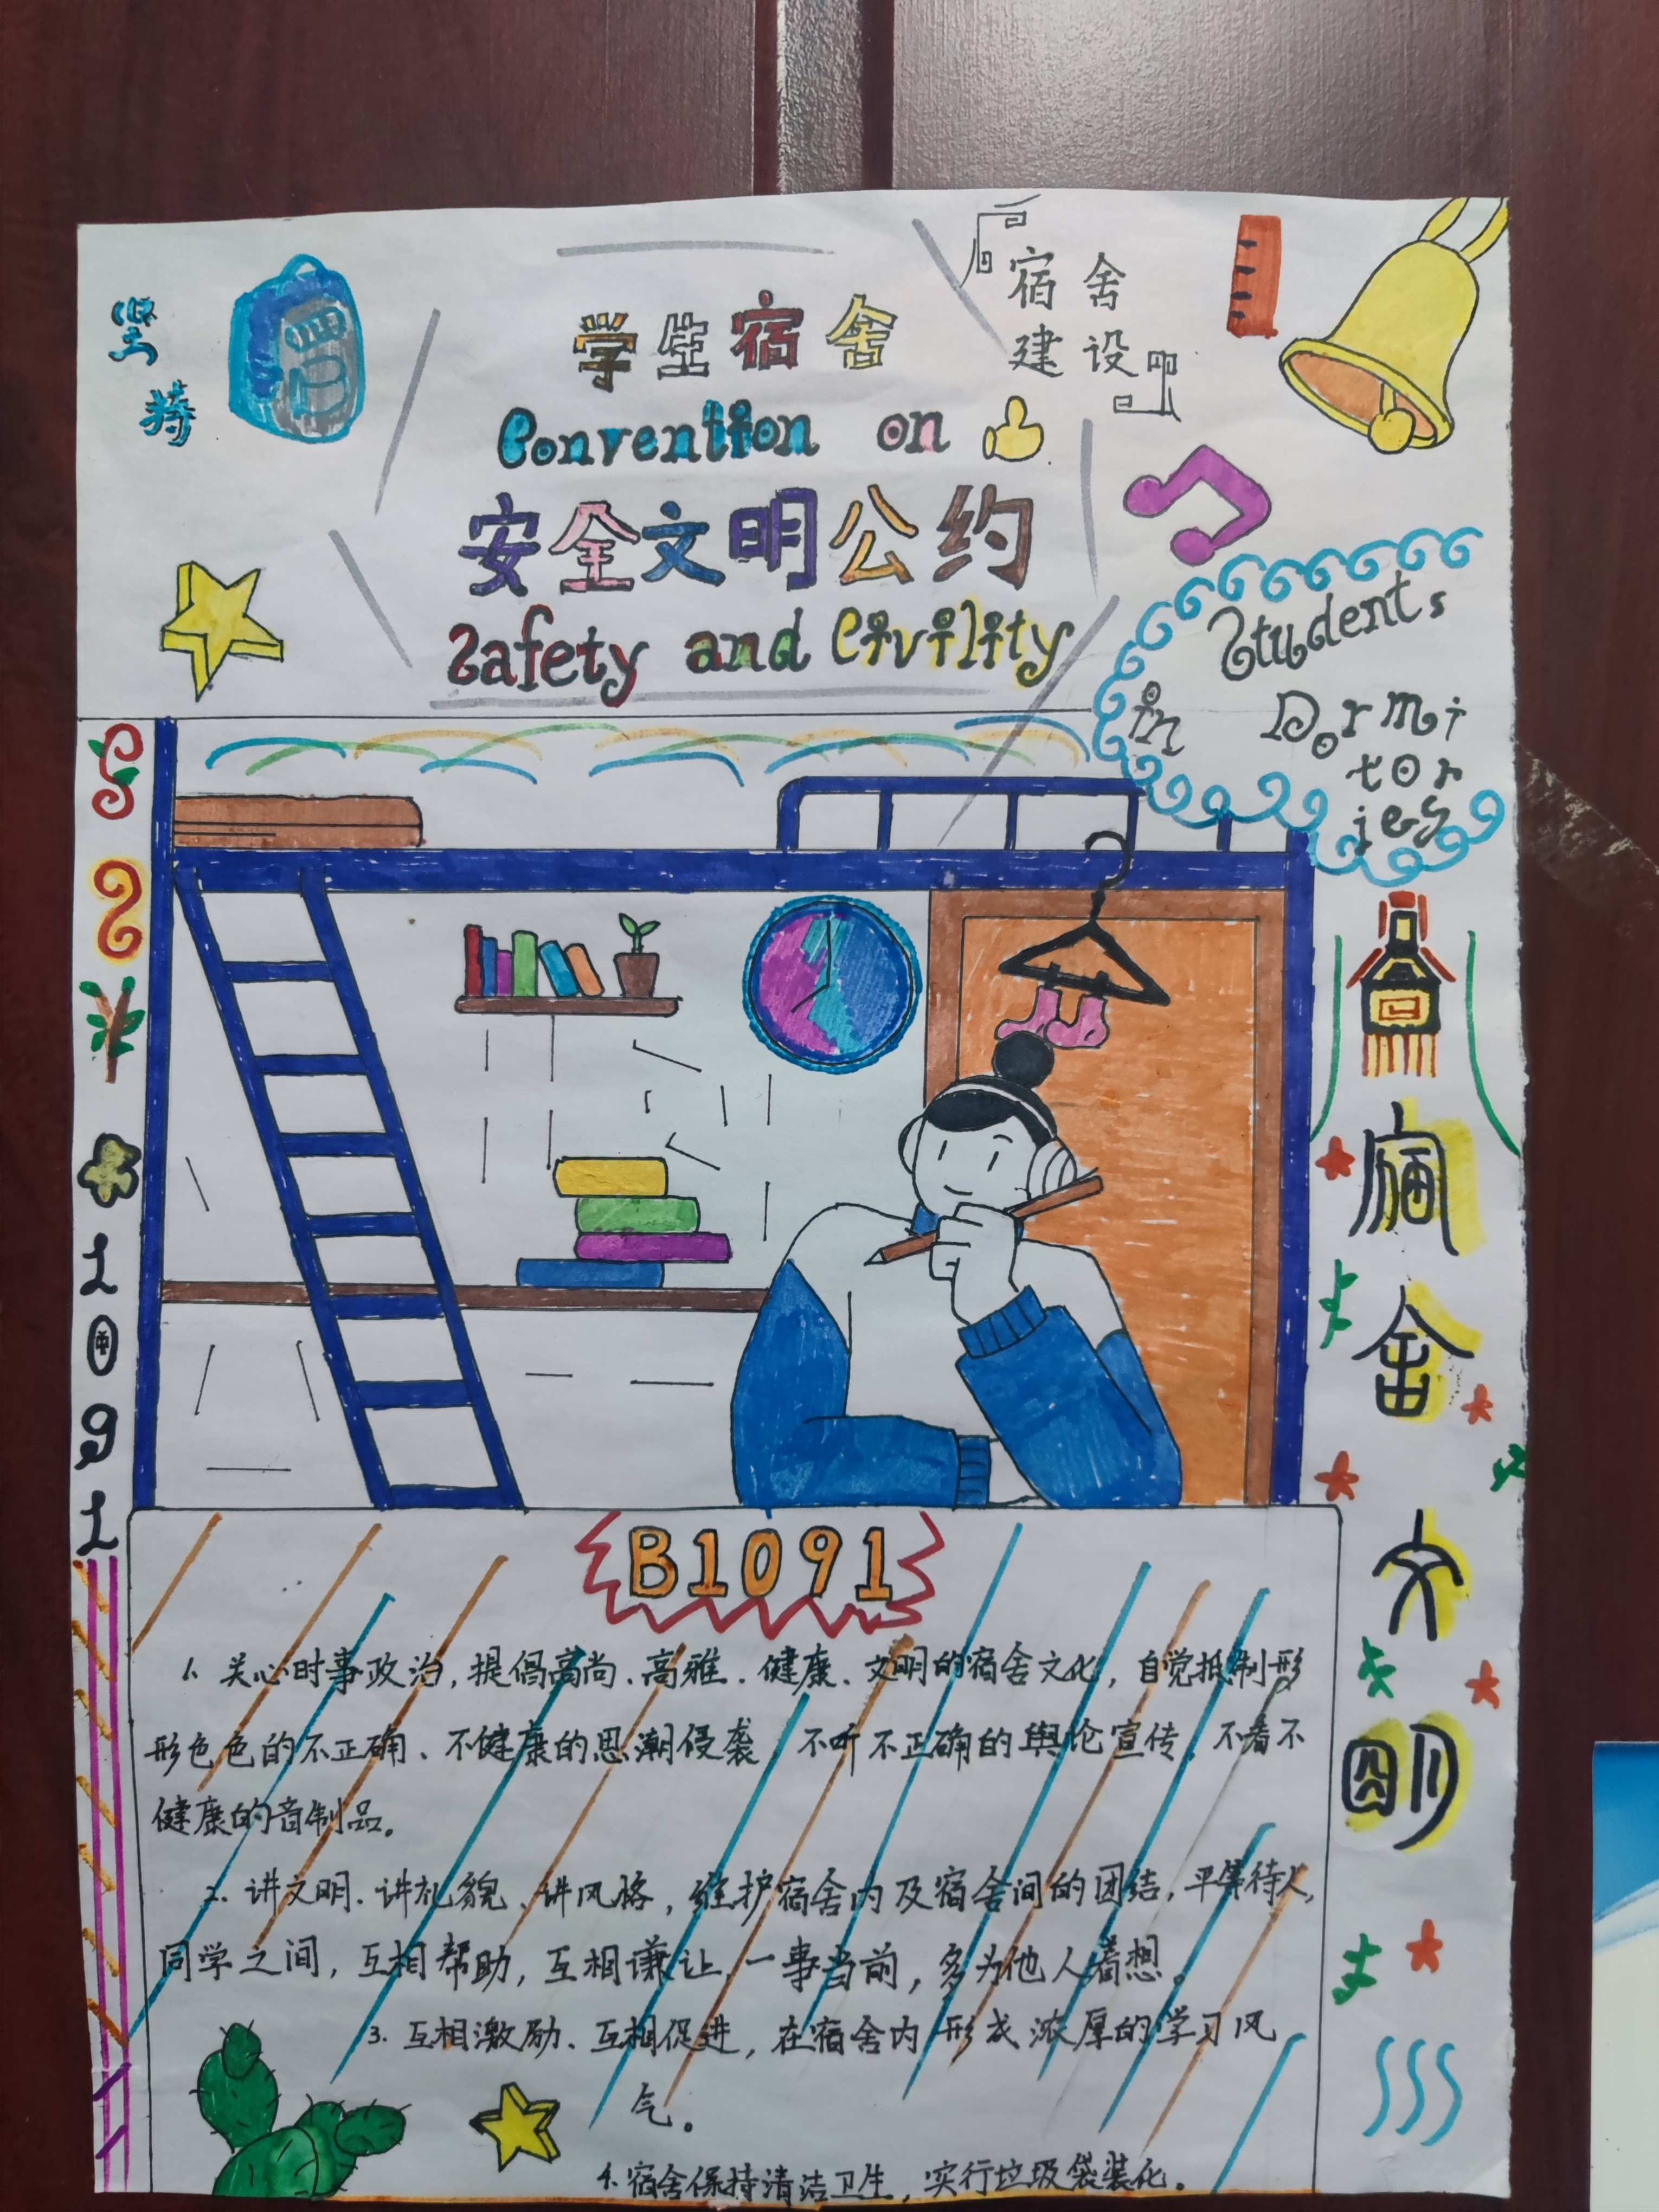 坚持
学生宿舍
宿舍
建设吧
Convention on
安全文明公约
Safety and Civility
Students
in Dormitories
宿舍文明
1091
B1091
1. 关心时事政治，提倡高尚、高雅、健康、文明的宿舍文化，自觉抵制形
形色色的不正确、不健康的思潮侵袭，不听不正确的舆论宣传，不看不
健康的音制品。
2. 讲文明、讲礼貌、讲风格，维护宿舍内及宿舍间的团结，平等待人，
同学之间，互相帮助，互相谦让，一事当前，多为他人着想。
3. 互相激励、互相促进，在宿舍内形成浓厚的学习风
气。
4. 宿舍保持清洁卫生，实行垃圾袋装化。